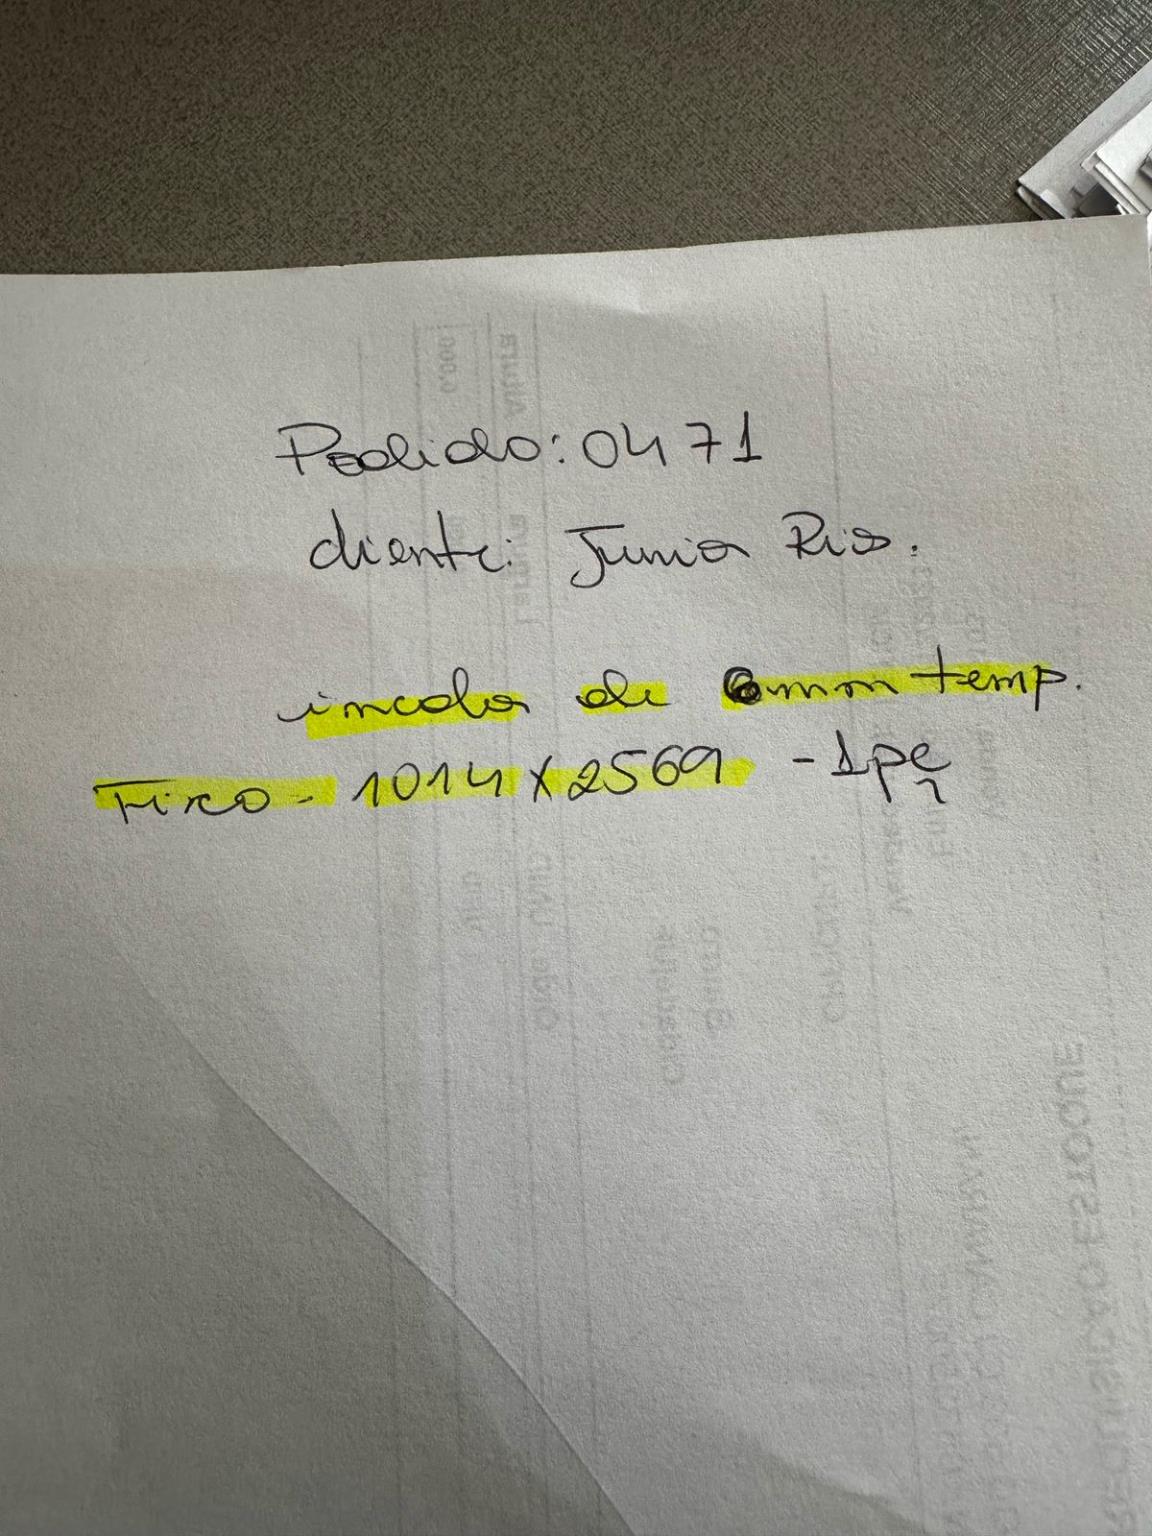 Pedido: 0471
cliente: Junia Rios.
incolor de 6mm temp.
Fixo - 1014 X 2569 - 1pç